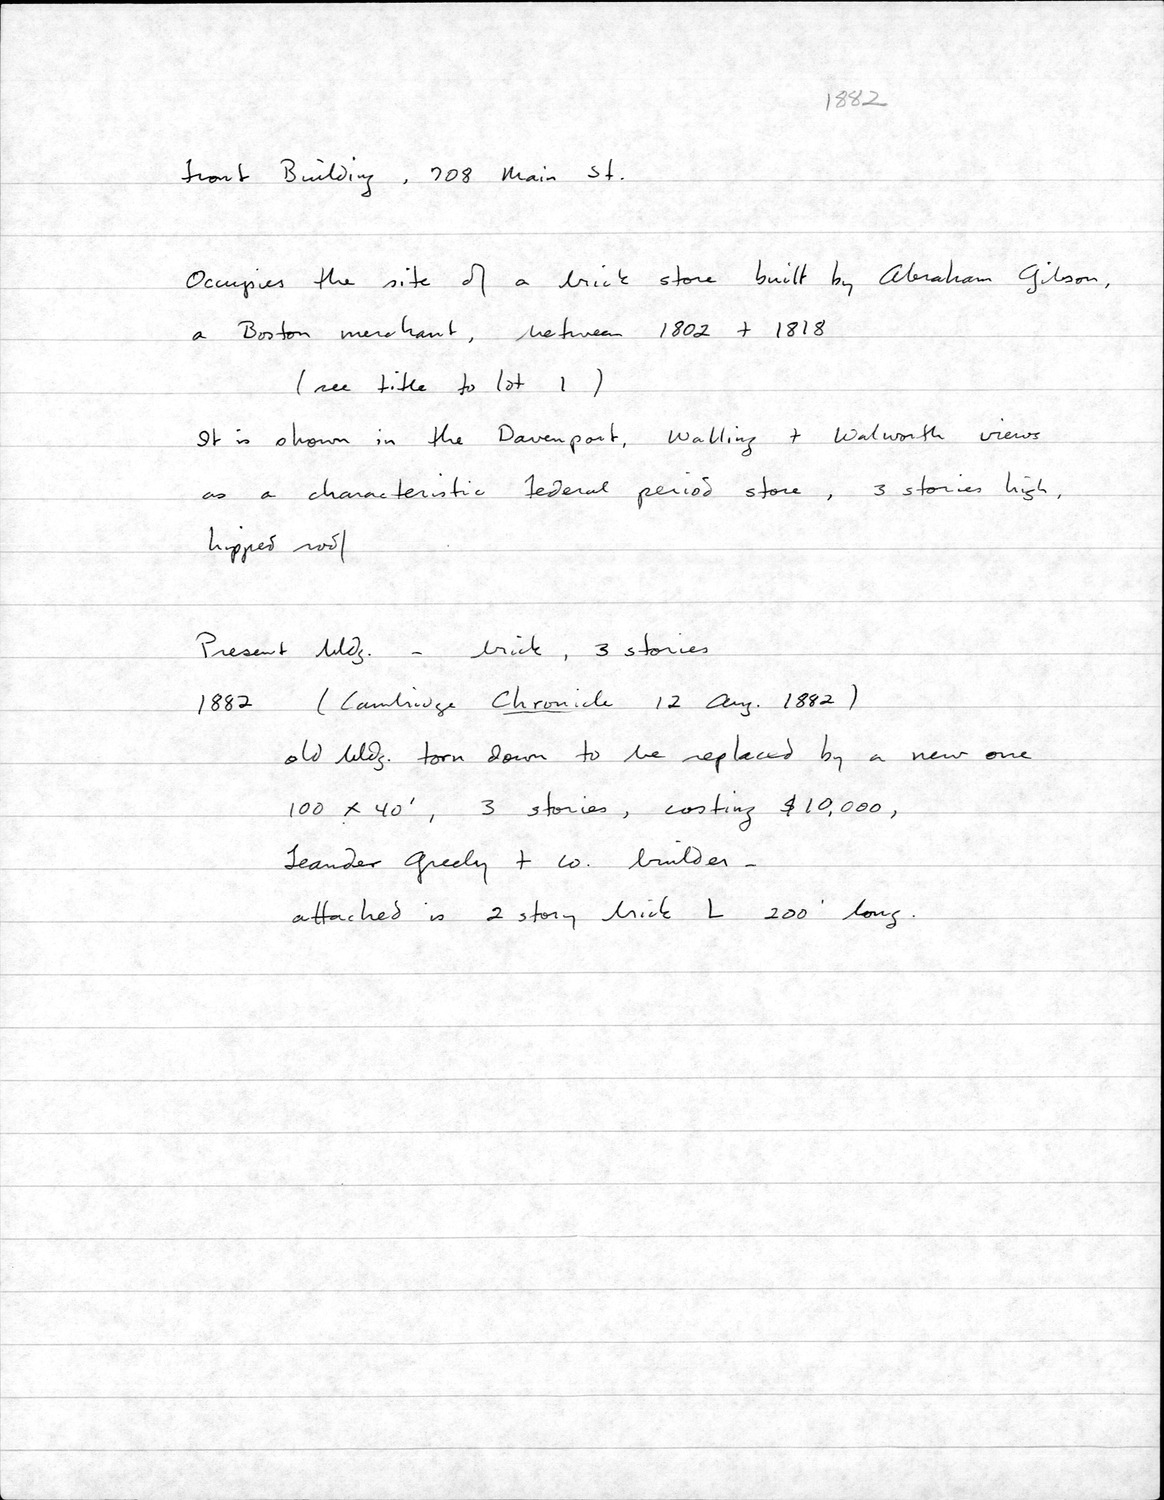 1882
Front Building, 708 Main St.
Occupies the site of a brick store built by Abraham Gibson,
a Boston merchant, between 1802 + 1818
(see title to lot 1)
It is shown in the Davenport, Walling + Walworth views
as a characteristic Federal period store, 3 stories high,
hipped roof
Present bldg. - brick, 3 stories
1882 (Cambridge Chronicle 12 Aug. 1882)
old bldg. torn down to be replaced by a new one
100 x 40', 3 stories, costing $10,000,
Leander Greely + Co. builder -
attached is 2 story brick L 200' long.